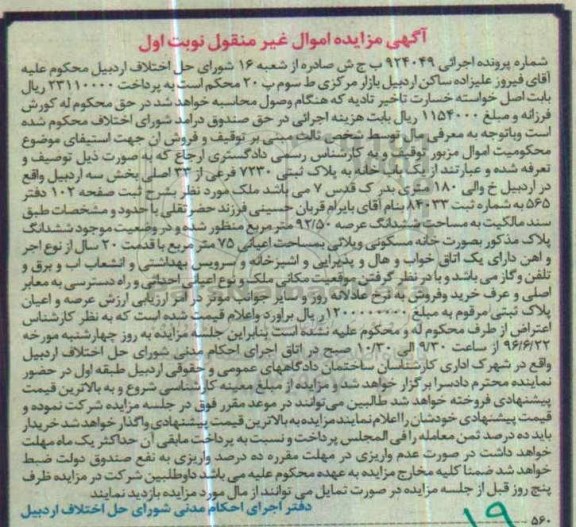 آگهی مزایده اموال غیر منقول نوبت اول
شماره پرونده اجرائی ۹۲۴۰۴۹ ب ج ش صادره از شعبه ۱۶ شورای حل اختلاف اردبیل محکوم علیه
آقای فیروز علیزاده ساکن اردبیل بازار مرکزی ط سوم پ ۲۰ محکم است به پرداخت ۲۳۱۱۰۰۰۰ ریال
بابت اصل خواسته خسارت تاخیر تادیه که هنگام وصول محاسبه خواهد شد در حق محکوم له کورش
فرزانه و مبلغ ۱۱۵۴۰۰۰ ریال بابت هزینه اجرائی در حق صندوق درامد شورای اختلاف محکوم شده
است وباتوجه به معرفی مال توسط شخص ثالث مبنی بر توقیف و فروش ان جهت استیفای موضوع
محکومیت اموال مزبور توقیف و به کارشناس رسمی دادگستری ارجاع که به صورت ذیل توصیف و
تعرفه شده و عبارتند از یک باب خانه به پلاک ثبتی ۷۲۳۰ فرعی از ۳۳ اصلی بخش سه اردبیل واقع
در اردبیل خ والی ۱۸۰ متری بدر ک قدس ۷ می باشد ملک مورد نظر بشرح ثبت صفحه ۱۰۲ دفتر
۵۶۵ به شماره ثبت ۸۴۰۳۳ بنام آقای بایرام قربان حسینی فرزند حضرتقلی با حدود و مشخصات طبق
سند مالکیت به مساحت ششدانگ عرصه ۹۲/۵۰ متر مربع منظور شده و در وضعیت موجود ششدانگ
پلاک مذکور بصورت خانه مسکونی ویلائی بمساحت اعیانی ۷۵ متر مربع با قدمت ۲۰ سال از نوع اجر
و اهن دارای یک اتاق خواب و هال و پذیرایی و اشپزخانه و سرویس بهداشتی و انشعاب اب و برق و
تلفن وگاز می باشد و با در نظر گرفتن موقعیت مکانی ملک و نوع اعیانی احداثی و راه دسترسی به معابر
اصلی و عرف خرید وفروش به نرخ عادلانه روز و سایر جوانب موثر در امر ارزیابی ارزش عرصه و اعیان
پلاک ثبتی مرقوم به مبلغ ۱۲۰۰۰۰۰۰۰۰ ریال براورد واعلام قیمت شده است که به نظر کارشناس
اعتراض از طرف محکوم له و محکوم علیه نشده است بنابراین جلسه مزایده به روز چهارشنبه مورخه
۹۶/۶/۲۲ از ساعت ۹/۳۰ الی ۱۰/۳۰ صبح در اتاق اجرای احکام مدنی شورای حل اختلاف اردبیل
واقع در شهرک اداری کارشناسان ساختمان دادگاههای عمومی و حقوقی اردبیل طبقه اول در حضور
نماینده محترم دادسرا برگزار خواهد شد و مزایده از مبلغ معینه کارشناسی شروع و به بالاترین قیمت
پیشنهادی فروخته خواهد شد طالبین می‌توانند در موعد مقرر فوق در جلسه مزایده شرکت نموده و
قیمت پیشنهادی خودشان را اعلام نمایند مزایده به بالاترین قیمت پیشنهادی واگذار خواهد شد خریدار
باید ده درصد ثمن معامله را فی المجلس پرداخت و نسبت به پرداخت مابقی آن حداکثر یک ماه مهلت
خواهد داشت در صورت عدم واریزی در مهلت مقرره ده درصد واریزی به نفع صندوق دولت ضبط
خواهد شد ضمنا کلیه مخارج مزایده به عهده محکوم علیه می باشد داوطلبین شرکت در مزایده ظرف
پنج روز قبل از جلسه مزایده در صورت تمایل می توانند از مال مورد مزایده بازدید نمایند
دفتر اجرای احکام مدنی شورای حل اختلاف اردبیل
۵۶۰
۱۹